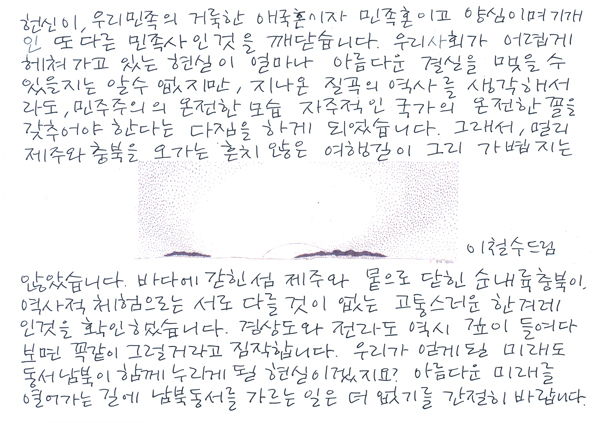 헌신이, 우리민족의 거룩한 애국혼이자 민족혼이고 양심이며 기개
인 또 다른 민족사인 것을 깨닫습니다. 우리사회가 어렵게
헤쳐가고 있는 현실이 얼마나 아름다운 결실을 맺을 수
있을지는 알 수 없지만, 지나온 질곡의 역사를 생각해서
라도, 민주주의의 온전한 모습 자주적인 국가의 온전한 꼴을
갖추어야 한다는 다짐을 하게 되었습니다. 그래서, 멀리
제주와 충북을 오가는 흔치 않은 여행길이 그리 가볍지는
이철수드림
않았습니다. 바다에 갇힌 섬 제주와 뭍으로 닫힌 순내륙 충북이,
역사적 체험으로는 서로 다를 것이 없는 고통스러운 한겨레
인것을 확인했습니다. 경상도와 전라도 역시 깊이 들여다
보면 똑같이 그럴거라고 짐작합니다. 우리가 얻게 될 미래도
동서남북이 함께 누리게 될 현실이겠지요? 아름다운 미래를
열어가는 길에 남북동서를 가르는 일은 더 없기를 간절히 바랍니다.